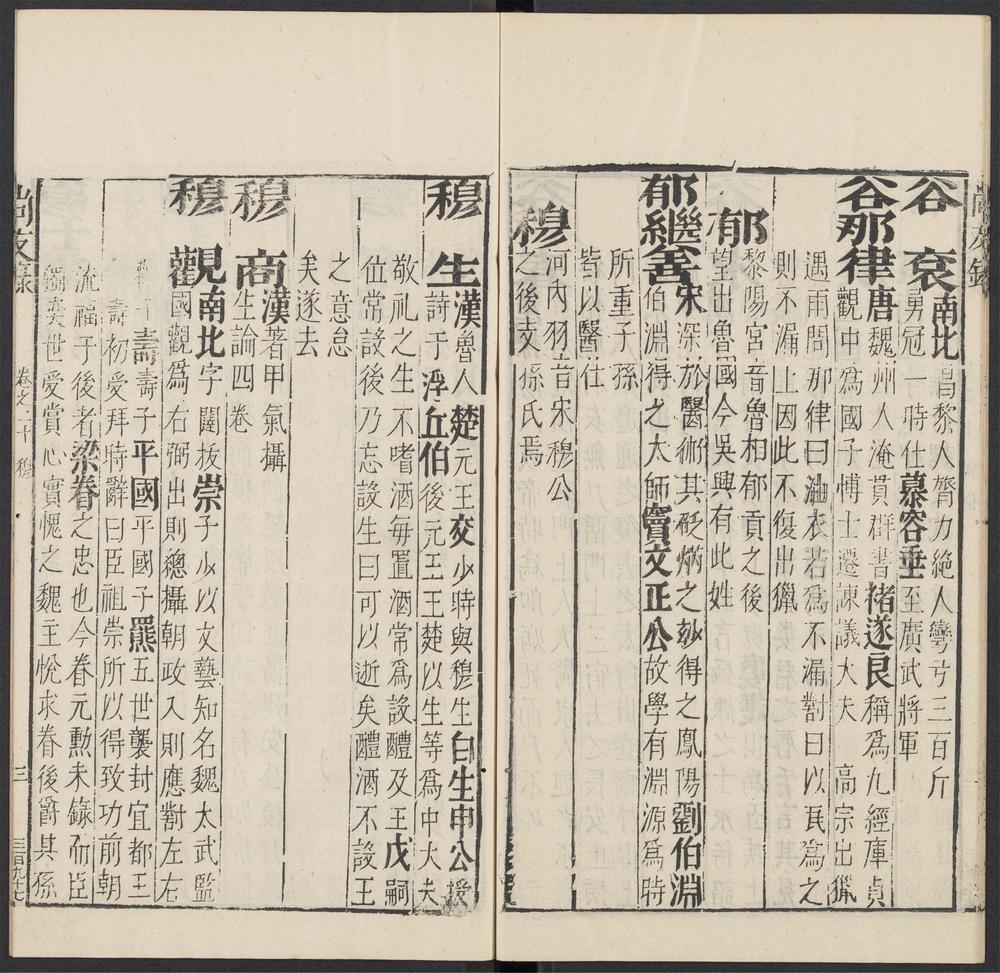 尚友錄
谷袞南北昌黎人膂力絶人彎弓三百斤
勇冠一時仕慕容垂至廣武將軍
谷那律唐魏州人淹貫群書褚遂良稱爲九經庫貞
觀中爲國子博士遷諫議大夫高宗出獵
遇雨問那律曰油衣若爲不漏對曰以瓦爲之
則不漏上因此不復出獵
郁黎陽宮音魯相郁貢之後
望出魯國今吳興有此姓
郁繼善宋深於醫術其砭焫之玅得之鳳陽劉伯淵
伯淵得之太師竇文正公故學有淵源爲時
所重子孫
皆以醫仕
穆河內羽音宋穆公
之後支孫氏焉
穆生漢魯人楚元王交少時與穆生白生申公授
詩于浮丘伯後元王王楚以生等爲中大夫
敬礼之生不嗜酒每置酒常爲設醴及王戊嗣
位常設後乃忘設生曰可以逝矣醴酒不設王
之意怠
矣遂去
穆商漢著甲氣攝
生論四卷
穆觀南北字闥拔崇子少以文藝知名魏太武監
國觀爲右弼出則總攝朝政入則應對左右
壽壽子平國平國子羆五世襲封宜都王
壽初受拜時辭曰臣祖崇所以得致功前朝
流福于後者梁眷之忠也今眷元勲未錄而臣
獨奕世受賞心實愧之魏主悅求眷後爵其孫
尚友錄 卷之二十 穆 三 三百九十七